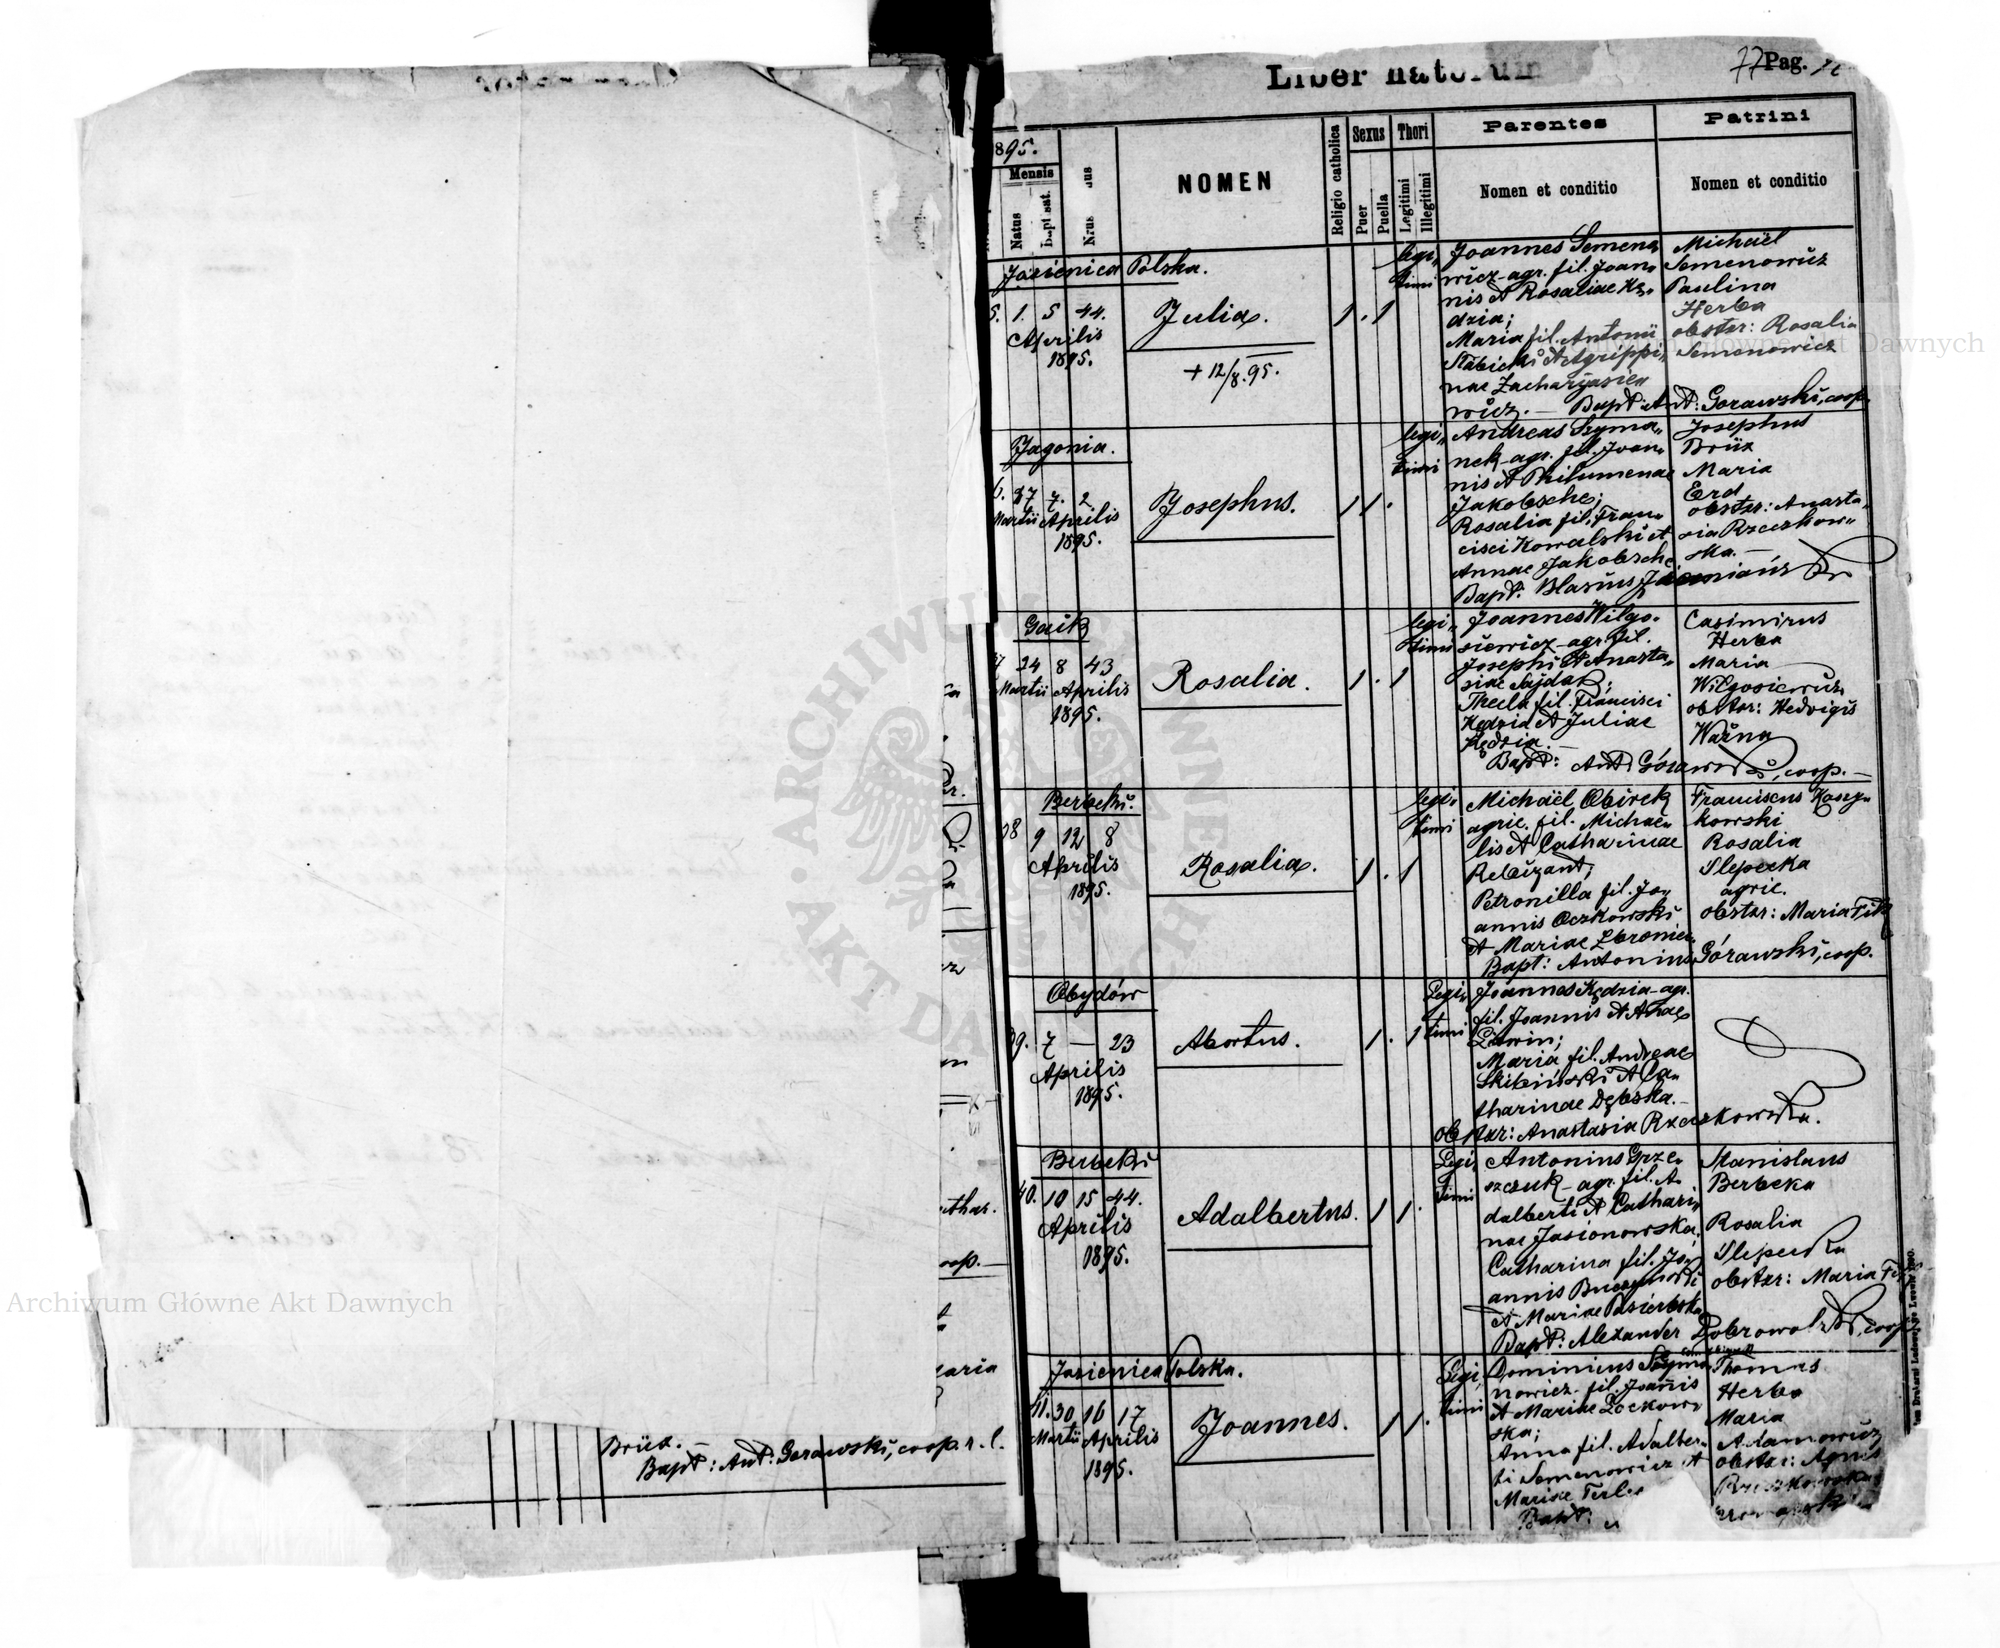 Liber natorum
77 Pag.
1895.
Mensis
Natus
Baptisat.
NOMEN
Religio catholica
Sexus
Puer
Puella
Thori
Legitimi
Illegitimi
Parentes
Nomen et conditio
Patrini
Nomen et conditio
Jasienica Polska.
5. 1. 5 44.
Aprilis
1895.
Julia.
+ 12/8. 95.
1 . 1
legi„
timi
Joannes Semeno
wicz agr. fil. Joan„
nis et Rosaliae Kę„
dzia;
Maria fil. Antonii
Słabicki et Agrippi„
nae Zacharyasie„
wicz. — Bapt: Ant: Gorawski, coop.
Michaël
Semenowicz
Paulina
Herba
obster: Rosalia
Semenowicz
Jagonia.
6. 27 7. 2
Martii Aprilis
1895.
Josephus.
1 1 .
legi„
timi
Andreas Szyma„
nek agr. fil. Joan„
nis et Philumenae
Jakobsche;
Rosalia fil. Fran„
cisci Kowalski et
Annae Jakobsche
Bapt: Blasius
Josephus
Brüx
Maria
Erd
obster: Anasta„
sia Rzeczkow„
ska. —
Gaik
7 24 8 43
Martii Aprilis
1895.
Rosalia.
1 . 1
legi„
timi
Joannes Wilgo„
siewicz agr. fil.
Josephi et Anasta„
siae Sajdak;
Thecla fil. Francisci
Kędzia et Juliae
Kędzia. —
Bapt: Ant Górawski, coop. —
Casimirus
Herba
Maria
Wilgosiewicz
obster: Hedvigis
Ważna
Berbeki.
08 9 12 8
Aprilis
1895.
Rosalia.
1 . 1
legi„
timi
Michaël Obirek
agric. fil. Michae„
lis et Catharinae
Rebizant;
Petronilla fil. Jo„
annis Oczkowski
et Mariae
Bapt: Antonius Górawski, coop.
Franciscus Kaszy„
kowski
Rosalia
Slepecka
agric.
obster: Maria Fik
Obydów
09. 7 — 23
Aprilis
1895.
Abortus.
1 . 1
Legi„
timi
Joannes Kędzia agr.
fil. Joannis et Annae
Litwin;
Maria fil. Andreae
Skibiński et Ca„
tharinae Dębska. —
obster: Anastasia Rzeczkowska.
Berbeki
40. 10 15 44.
Aprilis
1895.
Adalbertus.
1 1 .
Legi„
timi
Antonius Grze„
szczuk agr. fil. A„
dalberti et Cathari„
nae Jasionowska;
Catharina fil. Jo„
annis Buczynski
et Mariae Pasierbska
Bapt: Alexander Dobrowolski, coop
Stanislaus
Berbeka
Rosalia
Slepecka
obster: Maria Fik
Jasienica Polska.
41. 30 16 17
Martii Aprilis
1895.
Joannes.
1 1 .
Legi„
timi
Dominicus Szymo„
nowicz. fil. Joannis
et Mariae Zockow„
ska;
Anna fil. Adalber„
ti Semenowicz et
Mariae
Bapt:
Thomas
Herba
Maria
Adamowicz
obster: Agnes
Rzeczkowska
Brüx. —
Bapt: Ant: Gorawski, coop. r. l.
Archiwum Główne Akt Dawnych
Archiwum Główne Akt Dawnych
ARCHIWUM GŁÓWNE AKT DAWNYCH